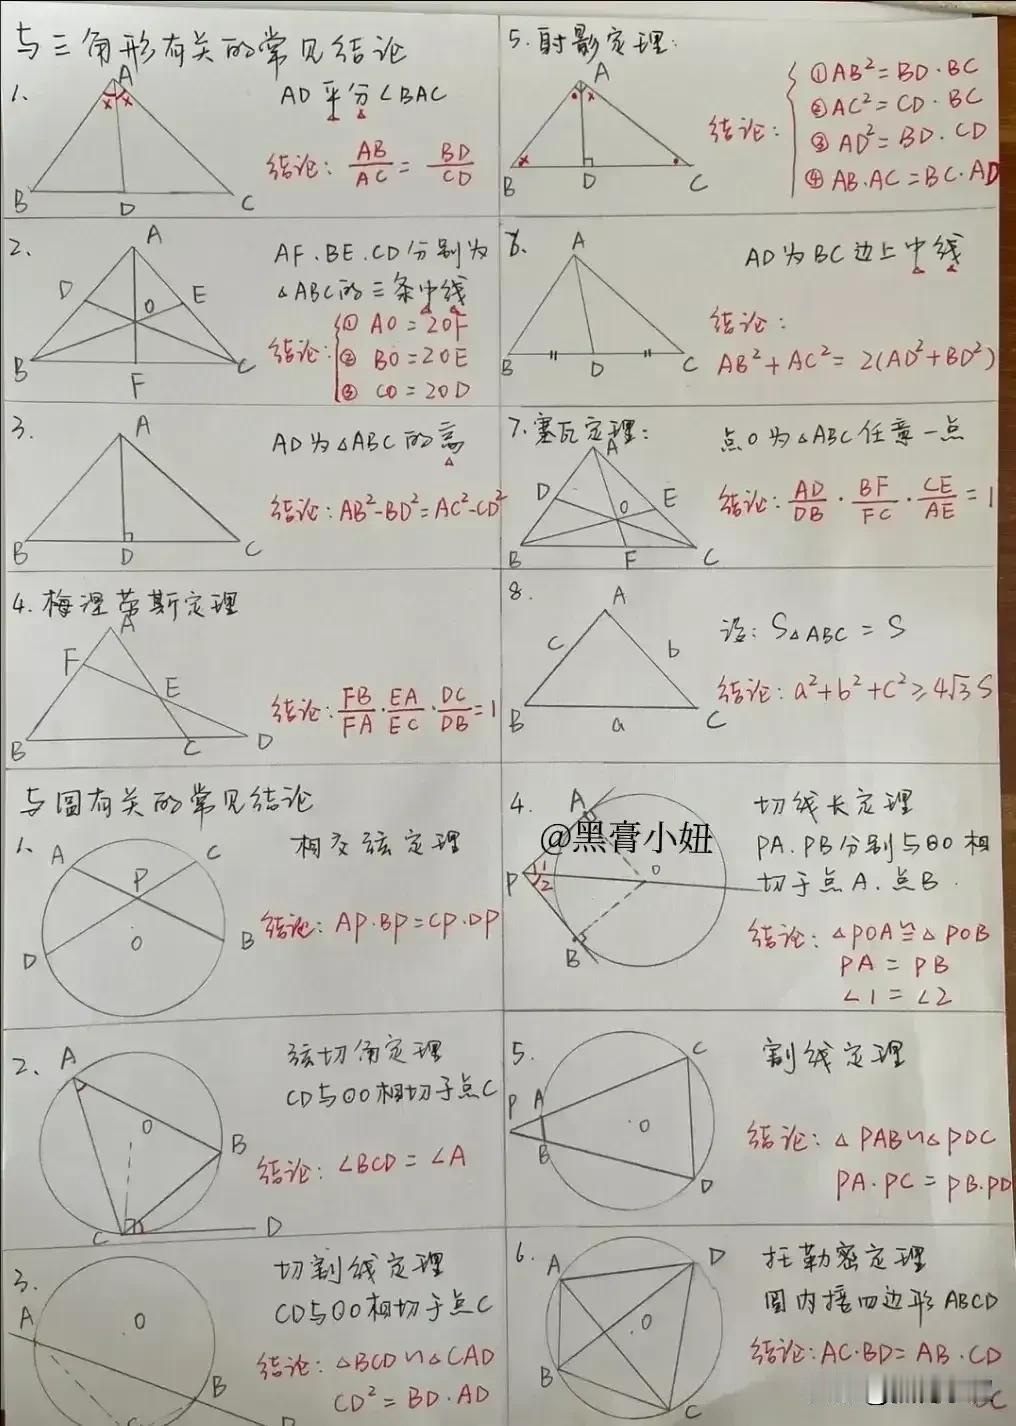 与三角形有关的常见结论
1.
A
x x
B
D
C
AD平分∠BAC
结论: AB/AC = BD/CD
2.
A
D
O
E
B
F
C
AF.BE.CD分别为
△ABC的三条中线
结论:
① AO=2OF
② BO=2OE
③ CO=2OD
3.
A
B
D
C
AD为△ABC的高
结论: AB²-BD²=AC²-CD²
4. 梅涅劳斯定理
A
F
E
B
C
D
结论: FB/FA · EA/EC · DC/DB = 1
5. 射影定理:
A
x
x
B
D
C
结论:
① AB²=BD·BC
② AC²=CD·BC
③ AD²=BD·CD
④ AB·AC=BC·AD
6.
A
B
D
C
AD为BC边上中线
结论:
AB²+AC²=2(AD²+BD²)
7. 塞瓦定理:
A
D
E
O
B
F
C
点O为△ABC任意一点
结论: AD/DB · BF/FC · CE/AE = 1
8.
A
c
b
B
a
C
设: S△ABC = S
结论: a²+b²+c²≥4√3 S
与圆有关的常见结论
1.
A
C
P
O
D
B
相交弦定理
结论: AP·BP=CP·DP
2.
A
O
B
C
D
弦切角定理
CD与⊙O相切于点C
结论: ∠BCD=∠A
3.
A
O
B
切割线定理
CD与⊙O相切于点C
结论: △BCD∽△CAD
CD²=BD·AD
4.
A
P
1
2
O
B
切线长定理
PA.PB分别与⊙O相
切于点A.点B.
结论: △POA≌△POB
PA=PB
∠1=∠2
@黑膏小妞
5.
C
P
A
O
B
D
割线定理
结论: △PAB∽△PDC
PA·PC=PB·PD
6.
A
D
O
B
C
托勒密定理
圆内接四边形ABCD
结论: AC·BD=AB·CD